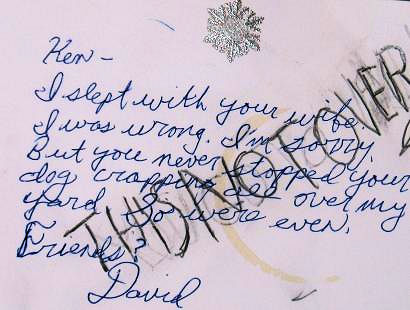 Ken-
I slept with your wife
I was wrong. I'm sorry.
But you never stopped your
dog crapping all over my
yard. So were even.
Friends?
David
THIS NOT OVER